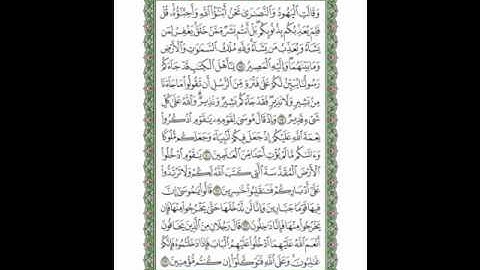 وَقَالَتِ ٱلۡيَهُودُ وَٱلنَّصَٰرَىٰ نَحۡنُ أَبۡنَٰٓؤُاْ ٱللَّهِ وَأَحِبَّٰٓؤُهُۥۚ قُلۡ
فَلِمَ يُعَذِّبُكُم بِذُنُوبِكُمۖ بَلۡ أَنتُم بَشَرٞ مِّمَّنۡ خَلَقَۚ يَغۡفِرُ لِمَن
يَشَآءُ وَيُعَذِّبُ مَن يَشَآءُۚ وَلِلَّهِ مُلۡكُ ٱلسَّمَٰوَٰتِ وَٱلۡأَرۡضِ
وَمَا بَيۡنَهُمَاۖ وَإِلَيۡهِ ٱلۡمَصِيرُ ١٨ يَٰٓأَهۡلَ ٱلۡكِتَٰبِ قَدۡ جَآءَكُمۡ
رَسُولُنَا يُبَيِّنُ لَكُمۡ عَلَىٰ فَتۡرَةٖ مِّنَ ٱلرُّسُلِ أَن تَقُولُواْ مَا جَآءَنَا
مِنۢ بَشِيرٖ وَلَا نَذِيرٖۖ فَقَدۡ جَآءَكُم بَشِيرٞ وَنَذِيرٞۗ وَٱللَّهُ عَلَىٰ كُلِّ
شَيۡءٖ قَدِيرٞ ١٩ وَإِذۡ قَالَ مُوسَىٰ لِقَوۡمِهِۦ يَٰقَوۡمِ ٱذۡكُرُواْ
نِعۡمَةَ ٱللَّهِ عَلَيۡكُمۡ إِذۡ جَعَلَ فِيكُمۡ أَنۢبِيَآءَ وَجَعَلَكُم مُّلُوكٗا
وَءَاتَىٰكُم مَّا لَمۡ يُؤۡتِ أَحَدٗا مِّنَ ٱلۡعَٰلَمِينَ ٢٠ يَٰقَوۡمِ ٱدۡخُلُواْ
ٱلۡأَرۡضَ ٱلۡمُقَدَّسَةَ ٱلَّتِي كَتَبَ ٱللَّهُ لَكُمۡ وَلَا تَرۡتَدُّواْ
عَلَىٰٓ أَدۡبَارِكُمۡ فَتَنقَلِبُواْ خَٰسِرِينَ ٢١ قَالُواْ يَٰمُوسَىٰٓ إِنَّ
فِيهَا قَوۡمٗا جَبَّارِينَ وَإِنَّا لَن نَّدۡخُلَهَا حَتَّىٰ يَخۡرُجُواْ مِنۡهَا فَإِن
يَخۡرُجُواْ مِنۡهَا فَإِنَّا دَٰخِلُونَ ٢٢ قَالَ رَجُلَانِ مِنَ ٱلَّذِينَ يَخَافُونَ
أَنۡعَمَ ٱللَّهُ عَلَيۡهِمَا ٱدۡخُلُواْ عَلَيۡهِمُ ٱلۡبَابَ فَإِذَا دَخَلۡتُمُوهُ فَإِنَّكُمۡ
غَٰلِبُونَۚ وَعَلَى ٱللَّهِ فَتَوَكَّلُوٓاْ إِن كُنتُم مُّؤۡمِنِينَ ٢٣